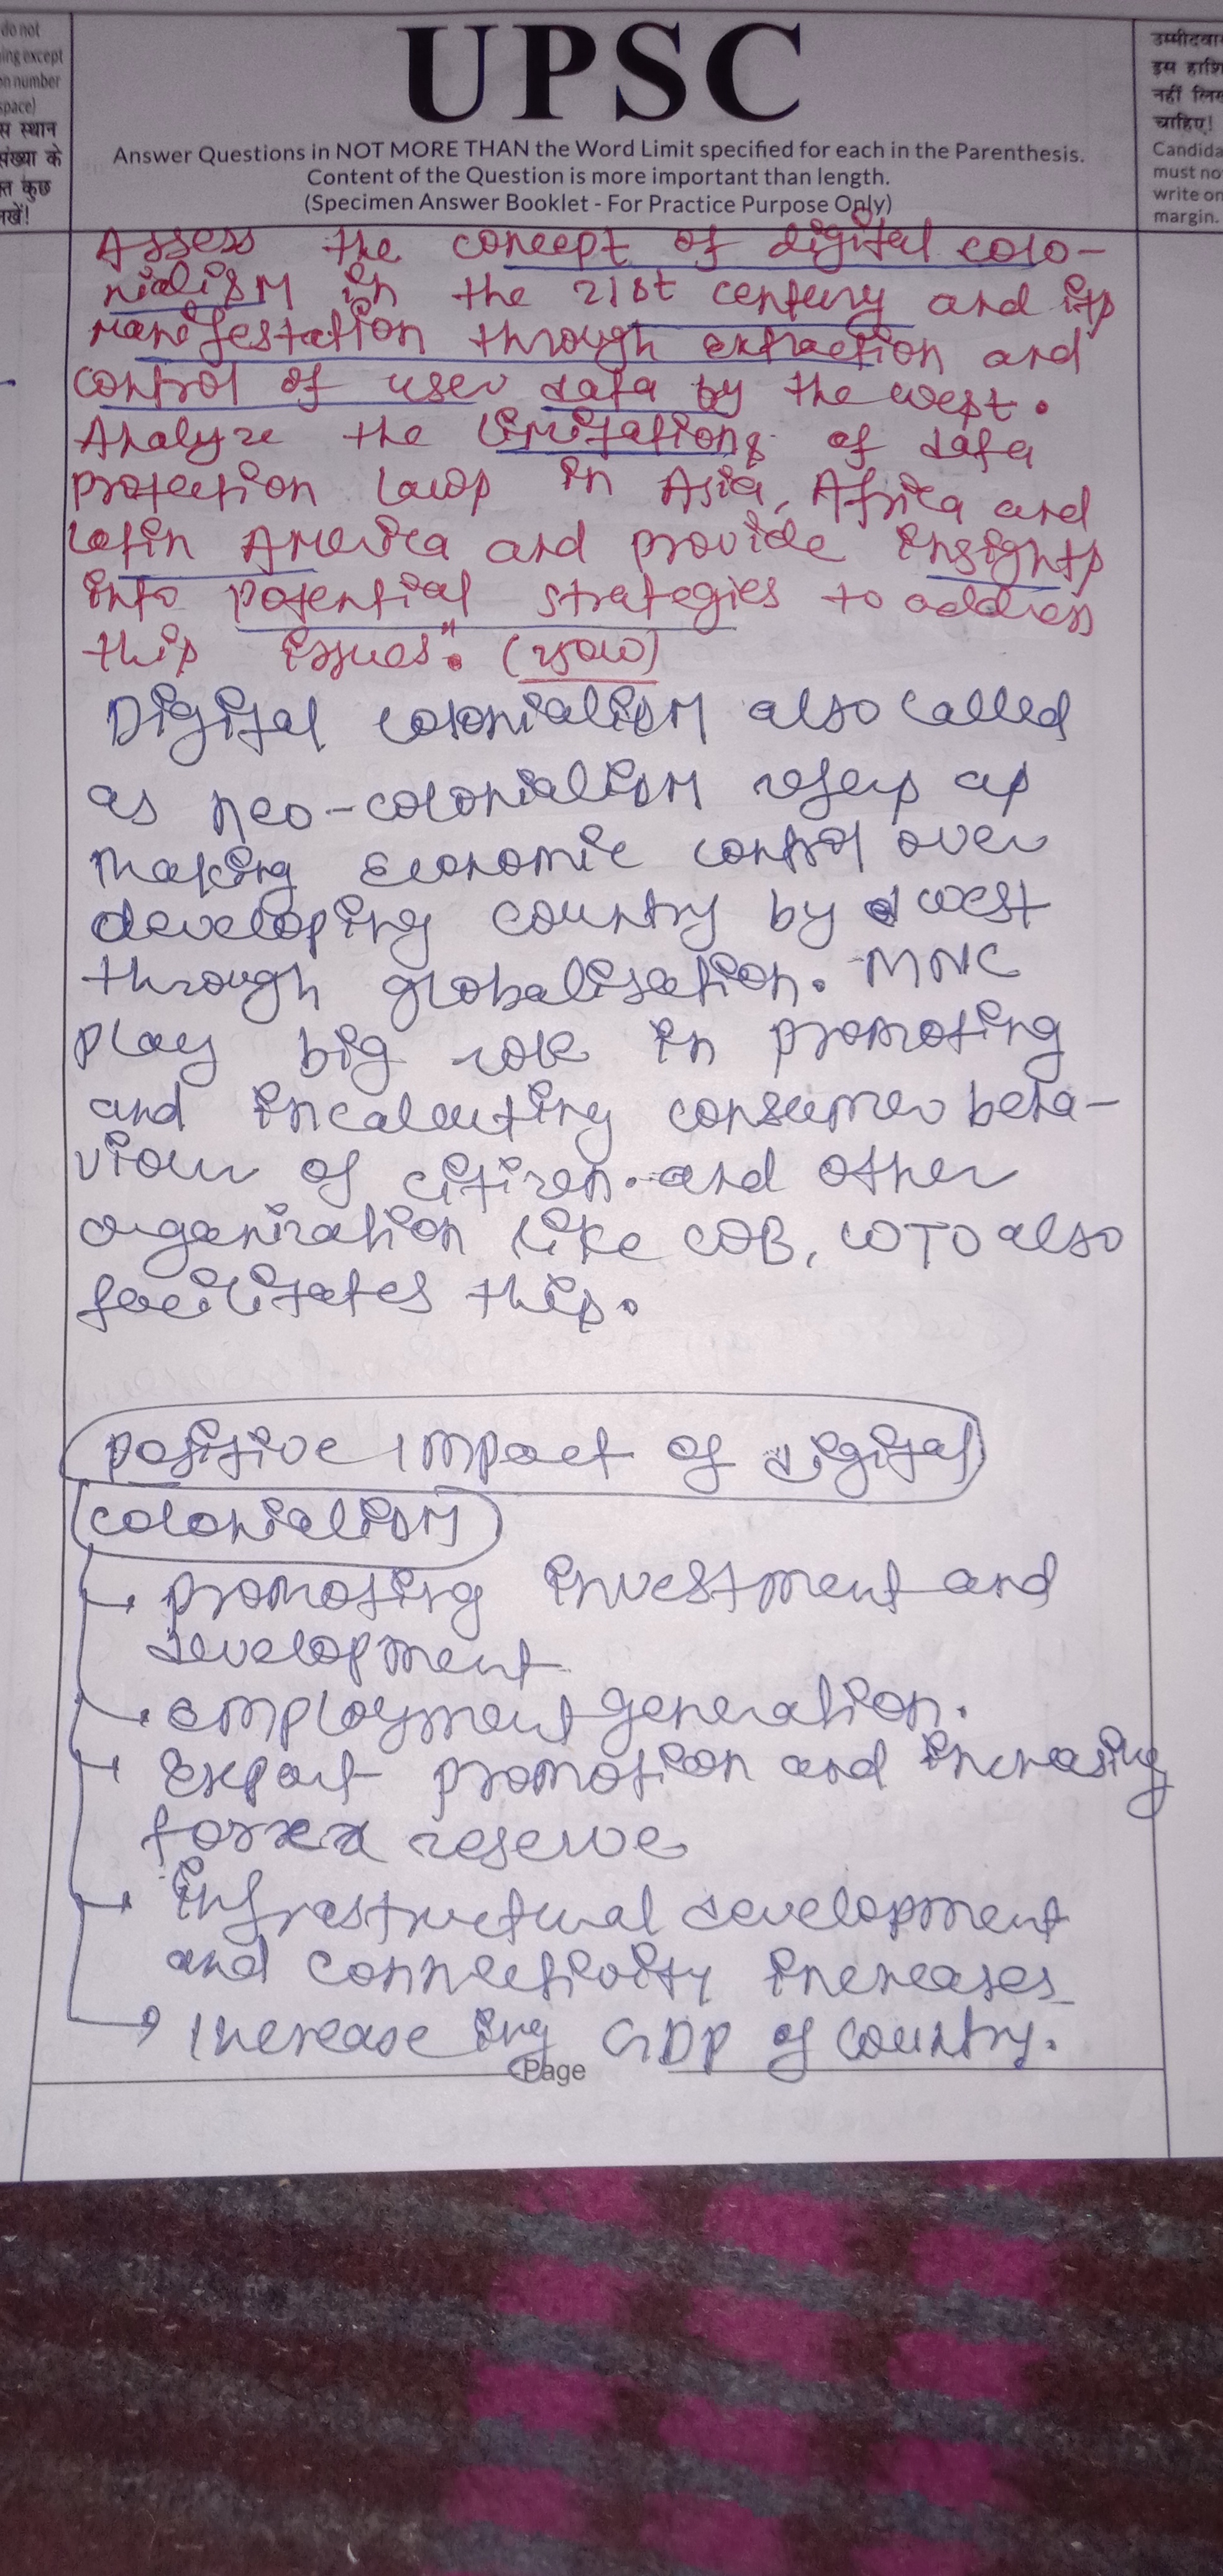 do not
ing except
on number
space)
स स्थान
संख्या के
त कुछ
नखें!
UPSC
Answer Questions in NOT MORE THAN the Word Limit specified for each in the Parenthesis.
Content of the Question is more important than length.
(Specimen Answer Booklet - For Practice Purpose Only)
उम्मीदवार
इस हाशि
नहीं लिख
चाहिए!
Candida
must no
write on
margin.
Assess the concept of digital colo-
nialism in the 21st century and its
manifestation through extraction and
control of user data by the west.
Analyze the limitations of data
protection laws in Asia, Africa and
Latin America and provide insights
into potential strategies to address
this issues". (250W)
Digital colonialism also called
as neo-colonialism refers as
making economic control over
developing country by west
through globalisation. MNC
play big role in promoting
and incalcuting consumer beha-
viour of citizen. and other
organization like WB, WTO also
facilitates this.
positive impact of digital
colonialism
promoting investment and
development
employment generation.
Export promotion and increasing
forex reserve
infrastructural development
and connectivity increases
increaseing GDP of country.
Page